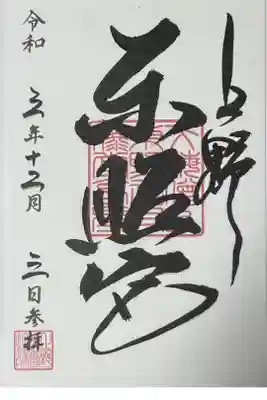 上野
東照宮
令和五年十二月三日参拝